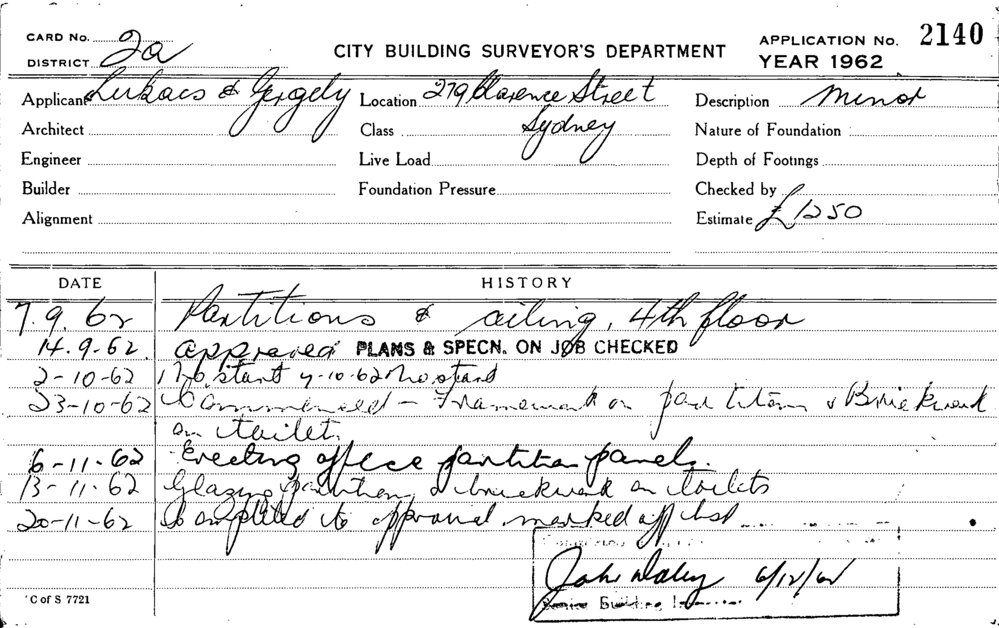 CARD No. 2a
DISTRICT
CITY BUILDING SURVEYOR'S DEPARTMENT
APPLICATION No. 2140
YEAR 1962
Applicant Lukacs & Gergely
Location 279 Clarence Street
Sydney
Description Minor
Architect
Class
Nature of Foundation
Engineer
Live Load
Depth of Footings
Builder
Foundation Pressure
Checked by
Alignment
Estimate £1250
DATE HISTORY
7.9.62 Partitions & ceiling, 4th floor
14.9.62. approved PLANS & SPECN. ON JOB CHECKED
2-10-62 No start 4-10-62 No start
23-10-62 Commenced - Framework on partition & Brickwork
on toilet.
6-11-62 Erecting office partition panels.
13-11-62 Glazing partition & brickwork on toilets
20-11-62 Completed to approval marked off list
John Daley 6/12/62
Senior Building
C of S 7721